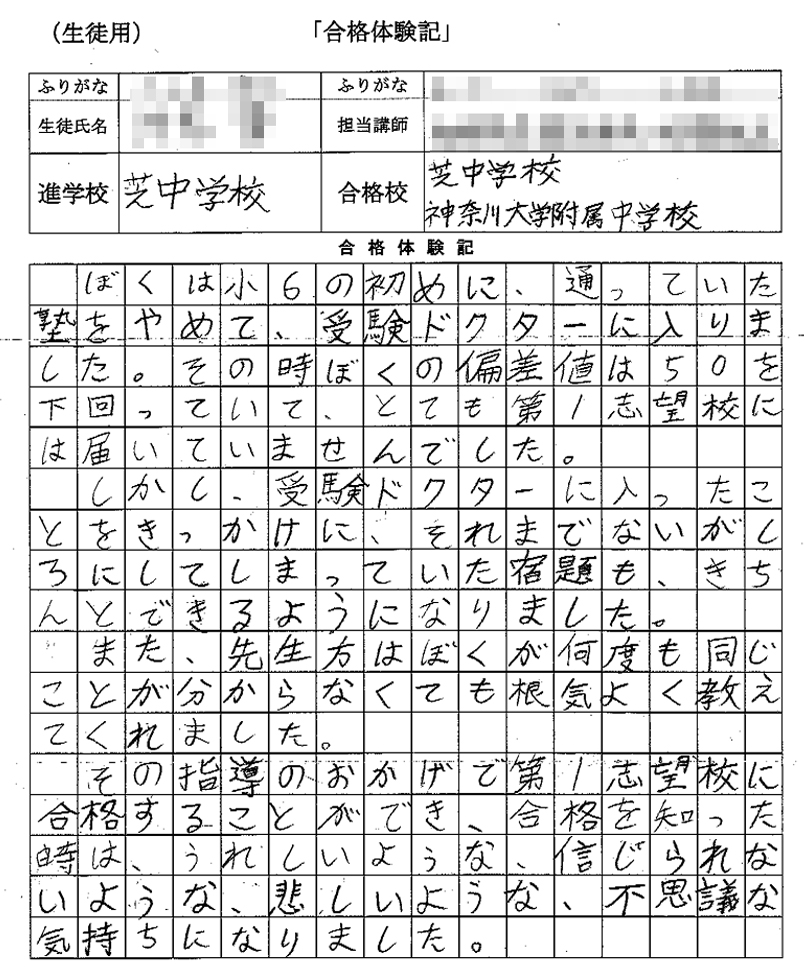 （生徒用）
「合格体験記」
ふりがな
ふりがな
生徒氏名
担当講師
進学校
芝中学校
合格校
芝中学校
神奈川大学附属中学校
合格体験記
ぼくは小6の初めに、通っていた
塾をやめて、受験ドクターに入りま
した。その時ぼくの偏差値は50を
下回っていて、とても第1志望校に
は届いていませんでした。
しかし、受験ドクターに入ったこ
とをきっかけに、それまでないがし
ろにしてしまっていた宿題も、きち
んとできるようになりました。
また、先生方はぼくが何度も同じ
ことが分からなくても根気よく教え
てくれました。
その指導のおかげで第1志望校に
合格することができ、合格を知った
時は、うれしいような、信じられな
いような、悲しいような、不思議な
気持ちになりました。